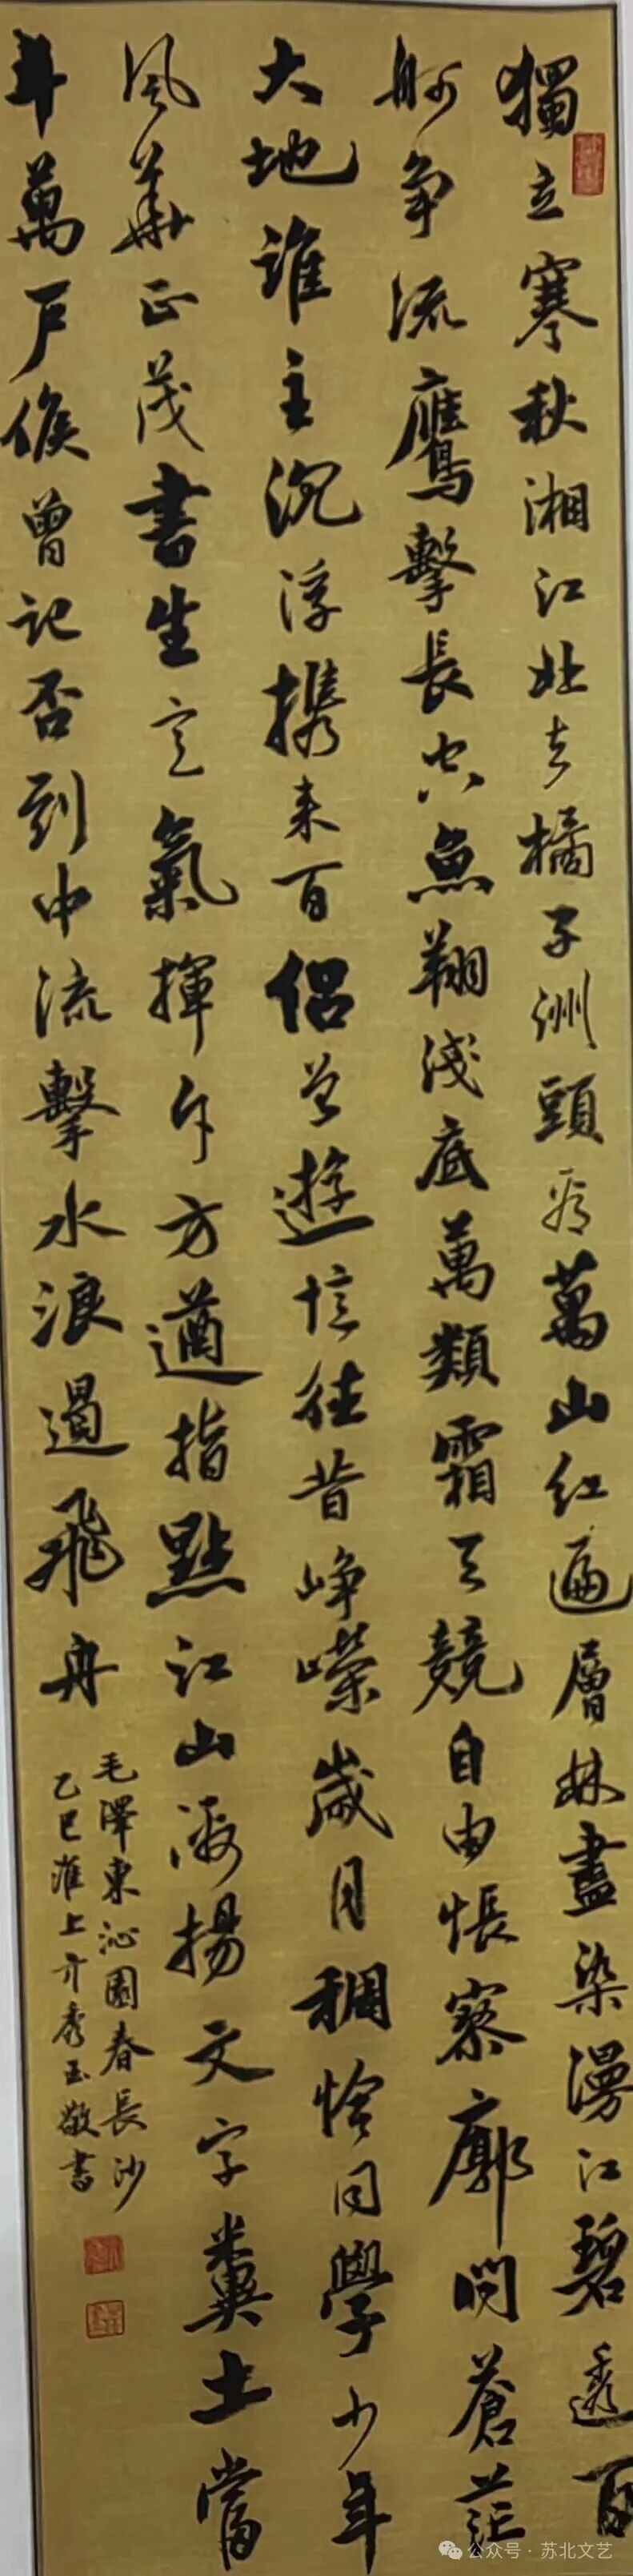 獨立寒秋湘江北去橘子洲頭看萬山紅遍層林盡染漫江碧透百
舸争流鷹擊長空魚翔淺底萬類霜天競自由悵寥廓問蒼茫
大地誰主沉浮携来百侣曾遊憶往昔崢嶸歲月稠恰同學少年
風華正茂書生意氣揮斥方遒指點江山激揚文字糞土當
年萬户侯曾記否到中流擊水浪遏飛舟
毛澤東沁園春長沙
乙巳淮上亓秀玉敬書
公众号 · 苏北文艺